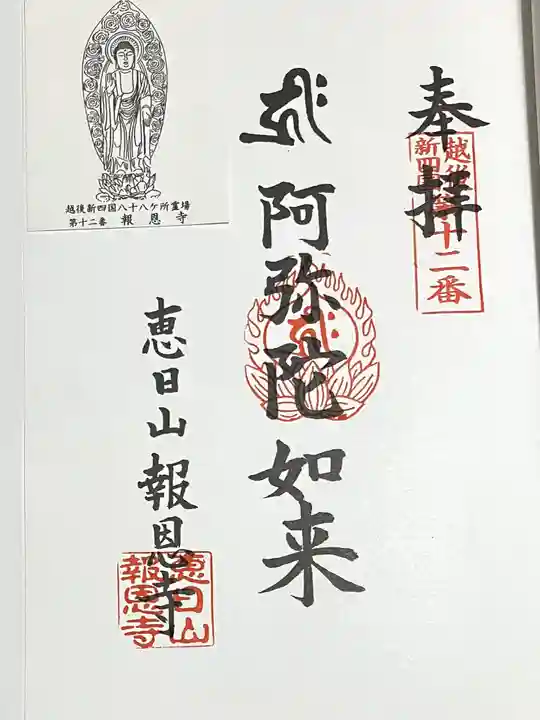 奉拝
越後
新四国
第十二番
𑖮𑖿𑖨𑖱𑖾
阿弥陀如来
恵日山報恩寺
恵日山
報恩寺
越後新四国八十八ケ所霊場
第十二番 報恩寺